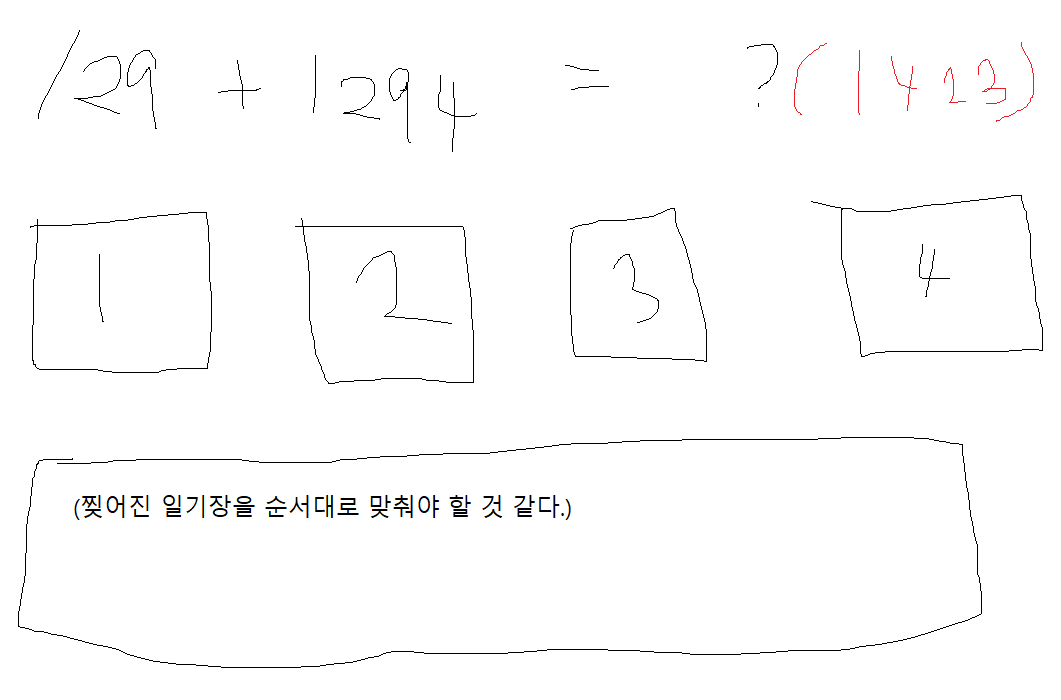 129 + 1294 = ? (1423)
1 2 3 4
(찢어진 일기장을 순서대로 맞춰야 할 것 같다.)